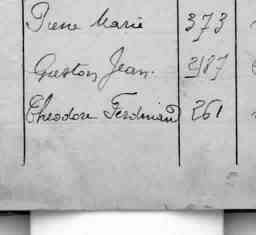 Irene Marie 373
Gaston Jean. 387
Theodore Ferdinand 261